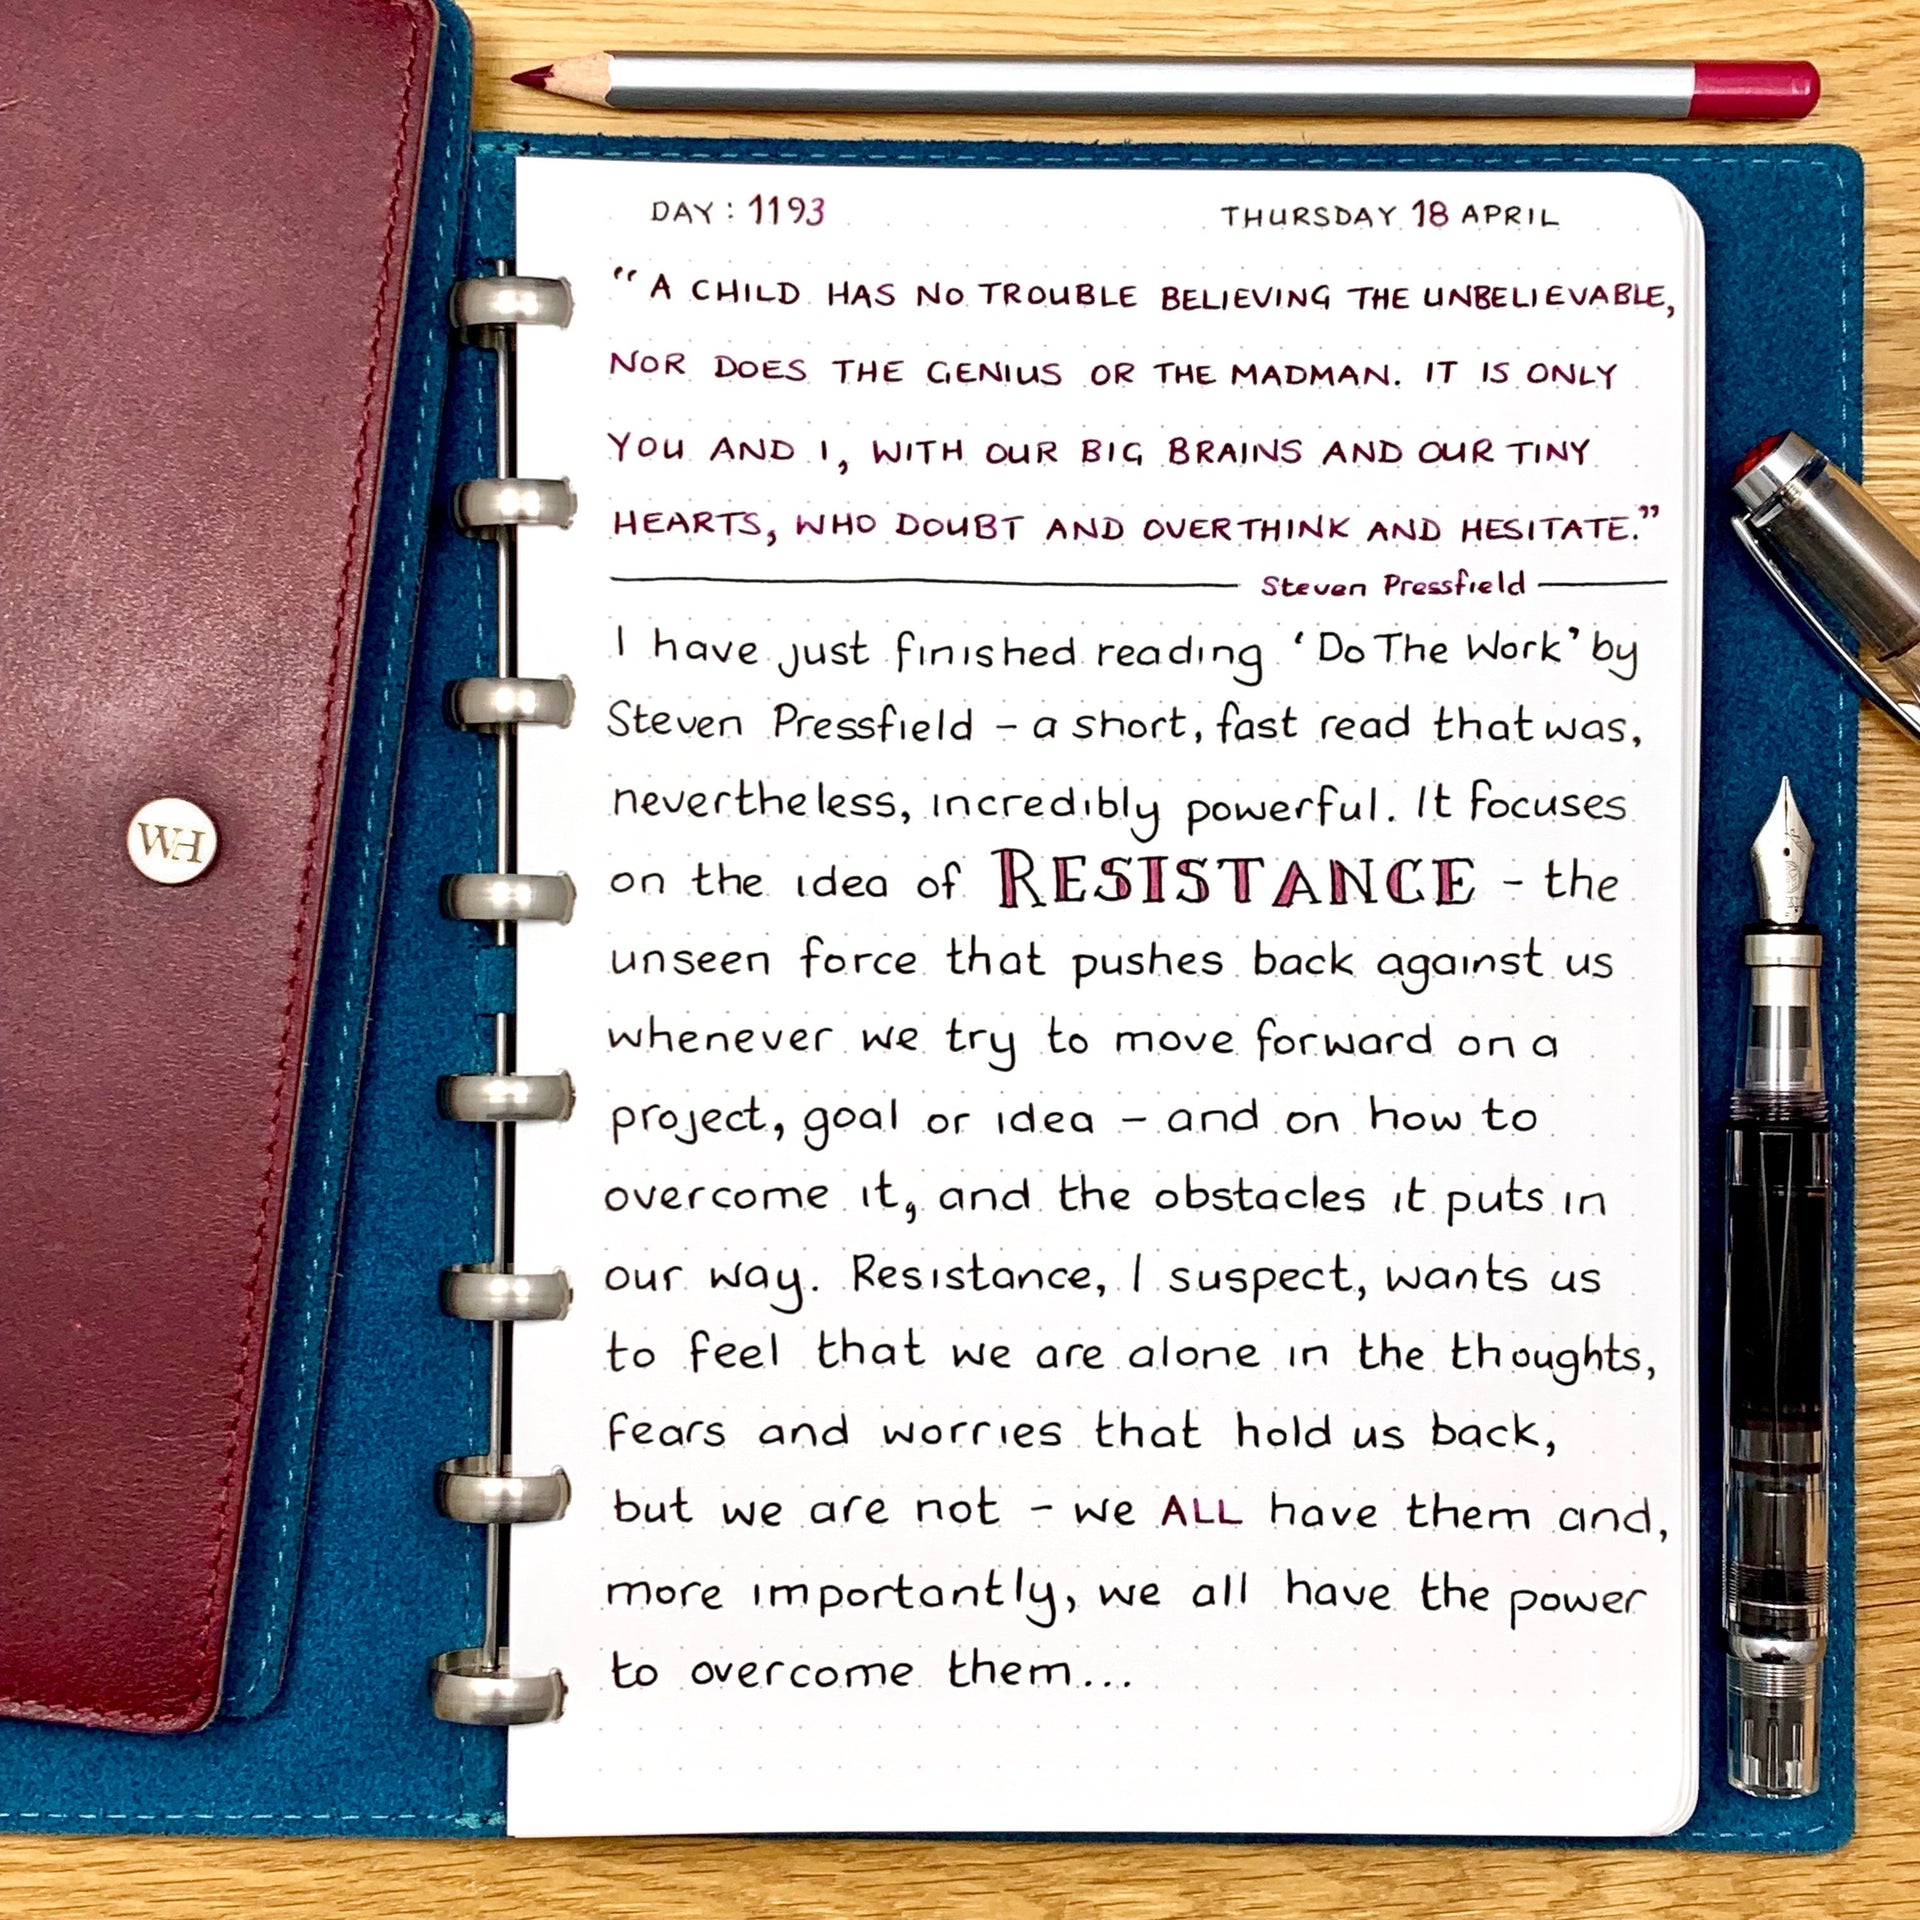 DAY: 1193
THURSDAY 18 APRIL
"A CHILD HAS NO TROUBLE BELIEVING THE UNBELIEVABLE,
NOR DOES THE GENIUS OR THE MADMAN. IT IS ONLY
YOU AND I, WITH OUR BIG BRAINS AND OUR TINY
HEARTS, WHO DOUBT AND OVERTHINK AND HESITATE."
Steven Pressfield
I have just finished reading 'Do The Work' by
Steven Pressfield - a short, fast read that was,
nevertheless, incredibly powerful. It focuses
on the idea of RESISTANCE - the
unseen force that pushes back against us
whenever we try to move forward on a
project, goal or idea - and on how to
overcome it, and the obstacles it puts in
our way. Resistance, I suspect, wants us
to feel that we are alone in the thoughts,
fears and worries that hold us back,
but we are not - we ALL have them and,
more importantly, we all have the power
to overcome them...
WH